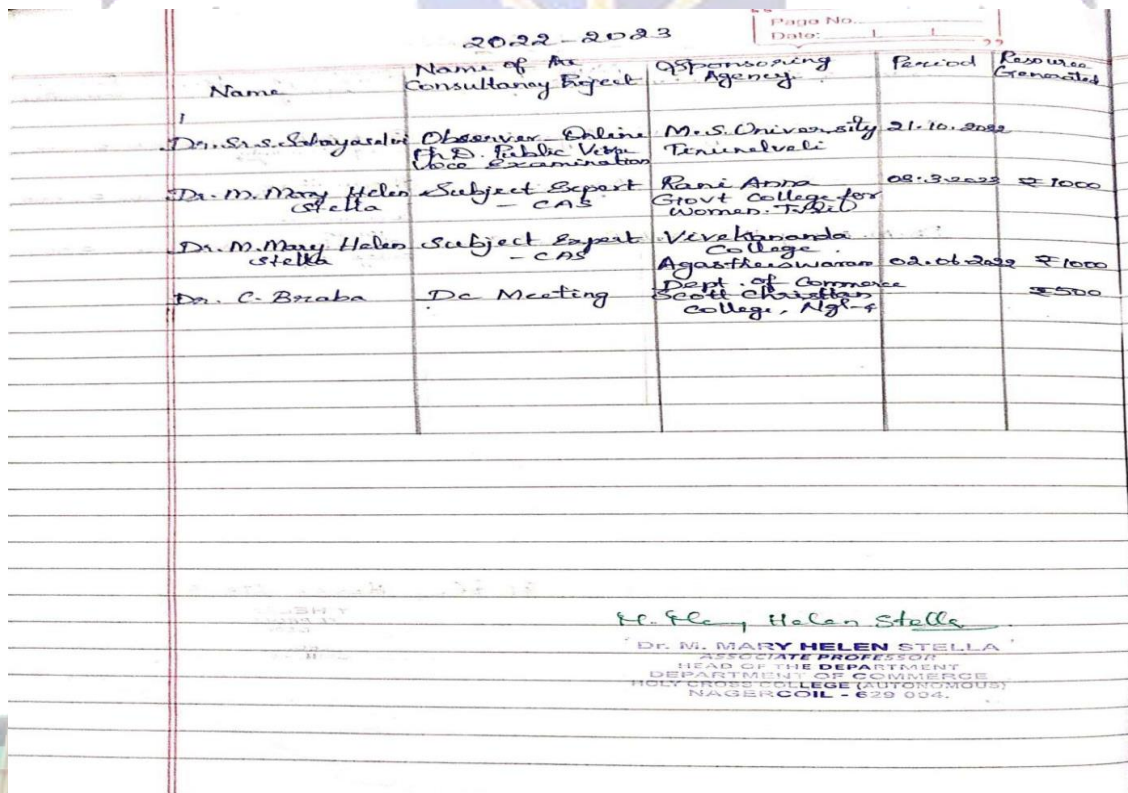 Page No.
Date:
2022-2023
Name
Name of the Consultancy Project
Sponsoring Agency
Period
Resource Generated
Dr. Sr. S. Sahayaselvi Observer Online Ph.D. Public Viva Voce Examination M.S. University Tirunelveli 21.10.2022
Dr. M. Mary Helen Stella Subject Expert - CAS Rani Anna Govt College for Women. 08.3.2023 ₹1000
Dr. M. Mary Helen Stella Subject Expert - CAS Vivekananda College Agastheeswaram 02.06.2022 ₹1000
Dr. C. Braba Dc Meeting Dept. of Commerce Scott Christian College, Ngl-4 ₹500
M. Mary Helen Stella
Dr. M. MARY HELEN STELLA
ASSOCIATE PROFESSOR
HEAD OF THE DEPARTMENT
DEPARTMENT OF COMMERCE
HOLY CROSS COLLEGE (AUTONOMOUS)
NAGERCOIL - 629 004.